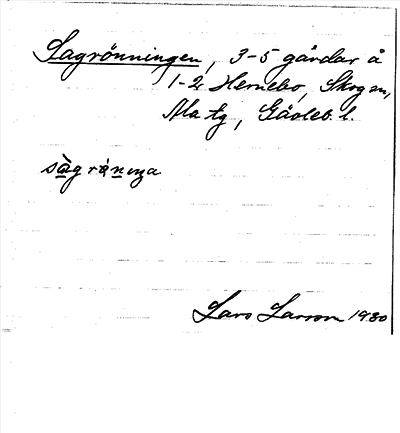 Sagrönningen, 3-5 gårdar å
1-2 Hernebo, Skog sn,
Ala tg, Gävleb. l.
sàg rǿnıŋa
Lars Larson 1930